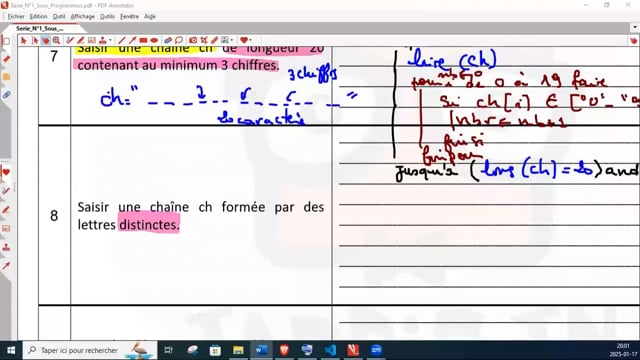 Serie_N°1_Sous_Programmes.pdf - PDF Annotator
Fichier Édition
Serie_N°1_Sous_
7
Saisir une chaîne ch de longueur 20
contenant au minimum 3 chiffres.
3 chiffres
ch = " "
20 caractère
lire (ch)
nb ← 0
pour i de 0 à 19 faire
Si ch[i] ∈ ["0"
finsi
finpour
jusqu'à (long(ch) = 20) and
8
Saisir une chaîne ch formée par des
lettres distinctes.
Taper ici pour rechercher
20:01
2025-01-17